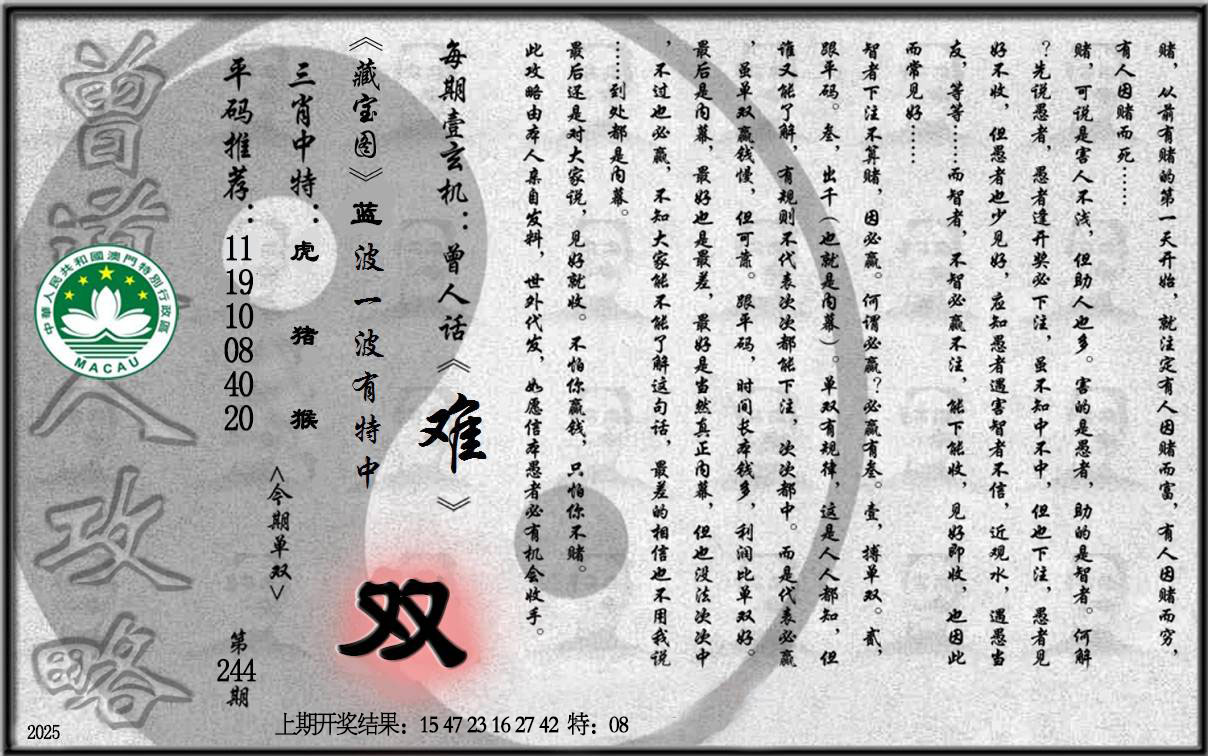 赌，从前有赌的第一天开始，就注定有人因赌而富，有人因赌而穷，
有人因赌而死……
赌，可说是害人不浅，但助人也多。害的是愚者，助的是智者。何解
？先说愚者，愚者逢开奖必下注，虽不知中不中，但也下注，愚者见
好不收，但愚者也少见好，应知愚者遇害智者不信，近观水，遇愚当
友，等等……而智者，不智必赢不注，能下能收，见好即收，也因此
而常见好……
智者下注不算赌，因必赢。何谓必赢？必赢有叁。壹，搏单双。贰，
跟平码。叁，出千（也就是内幕）。单双有规律，这是人人都知，但
谁又能了解，有规则不代表次次都能下注，次次都中。而是代表必赢
，虽单双赢钱慢，但可靠。跟平码，时间长本钱多，利润比单双好。
最后是内幕，最好也是最差，最好是当然真正内幕，但也没法次次中
，不过也必赢，不知大家能不能了解这句话，最差的相信也不用我说
……到处都是内幕。
最后还是对大家说，见好就收。不怕你赢钱，只怕你不赌。
此攻略由本人亲自发料，世外代发，如愿信本愚者必有机会收手。
每期壹玄机：曾人话《难》
《藏宝图》蓝波一波有特中
双
三肖中特：虎 猪 猴
<今期单双>
平码推荐：11 19 10 08 40 20
第244期
曾道人攻略
中華人民共和國澳門特別行政區
MACAU
上期开奖结果：15 47 23 16 27 42 特：08
2025